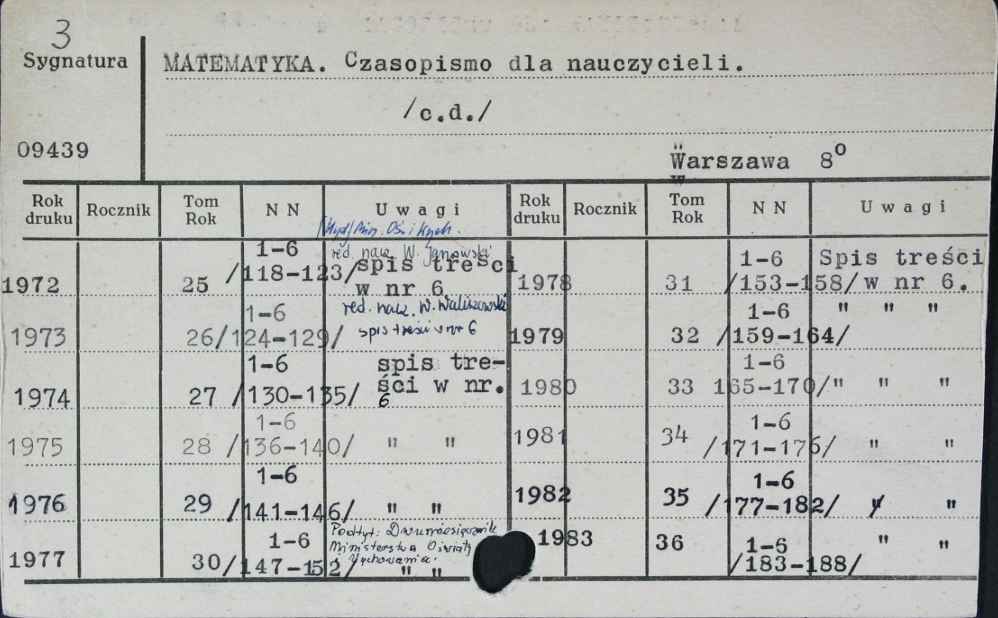 3
Sygnatura
MATEMATYKA. Czasopismo dla nauczycieli.
/c.d./
09439
Warszawa 8º
Rok druku Rocznik Tom Rok N N Uwagi Rok druku Rocznik Tom Rok N N Uwagi
red. nacz. W. Janowski
1972 25 1-6 /118-123/ spis treści w nr 6 1978 31 1-6 /153-158/ Spis treści w nr 6.
1973 26 1-6 /124-129/ red. nacz. W. Waliszewski spis treści w nr 6 1979 32 1-6 /159-164/ " " "
1974 27 1-6 /130-135/ spis tre-ści w nr. 6 1980 33 1-6 165-170/ " " "
1975 28 1-6 /136-140/ " " 1981 34 1-6 /171-176/ " "
1976 29 1-6 /141-146/ " " 1982 35 1-6 /177-182/ " "
1977 30 1-6 /147-152/ Podtyt: Dwumiesięcznik Ministerstwa Oświaty i Wychowania. " " 1983 36 1-6 /183-188/ " "